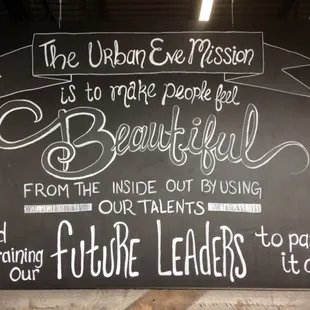 The Urban Eve Mission
is to make people feel
Beautiful
FROM THE INSIDE OUT BY USING
OUR TALENTS
training our future Leaders to
it